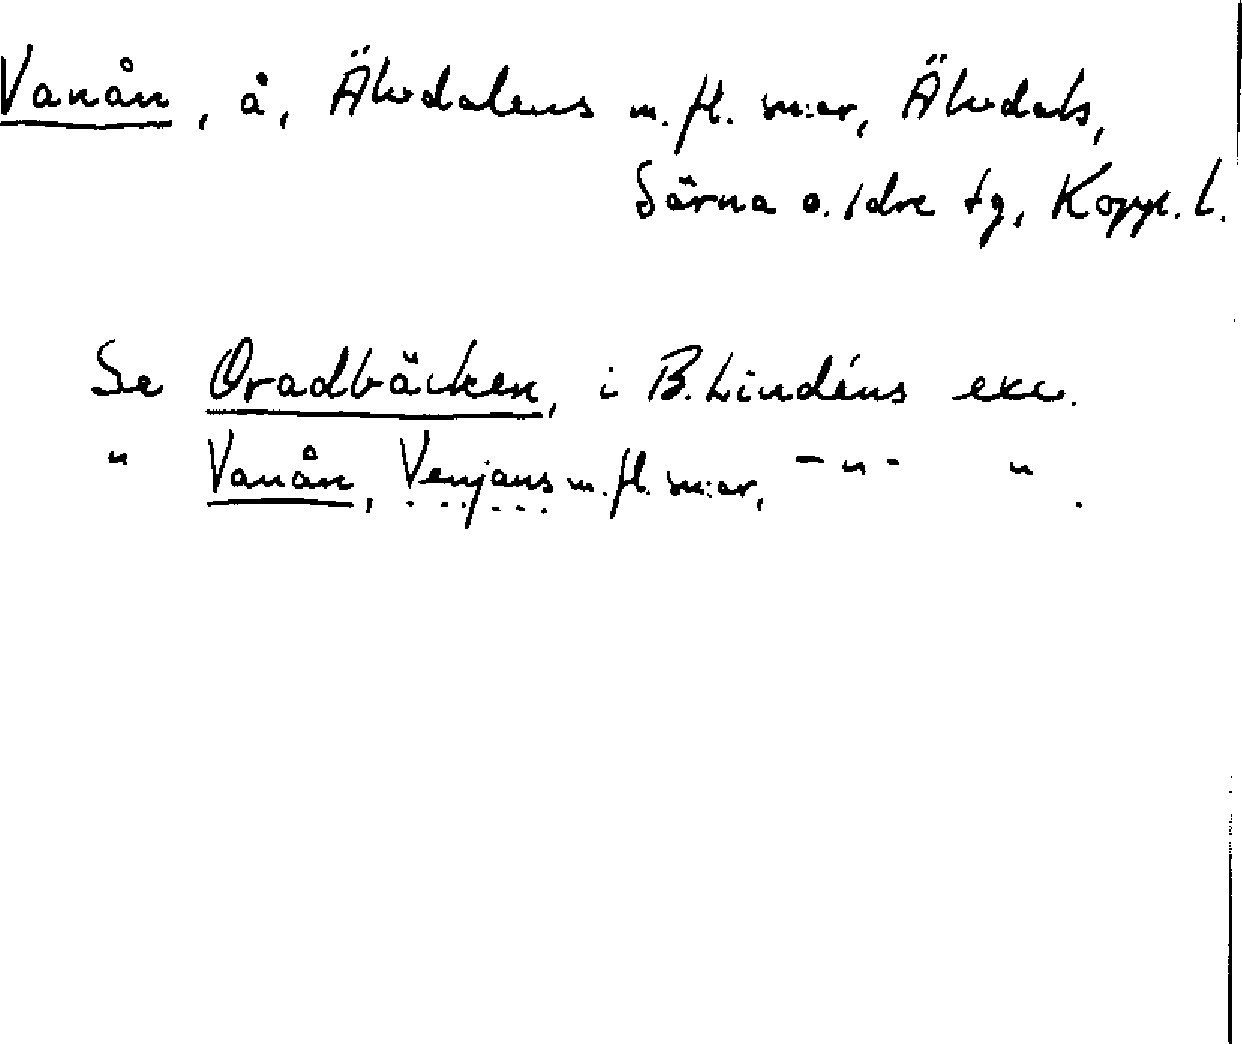 Vanån, å, Älvdalens m.fl. sn:ar, Älvdals,
Särna o. Idre tg, Kopp. l.
Se Oradbäcken, i B. Lindéns exc.
" Vanån, Venjans m.fl. sn:ar, -"- " .